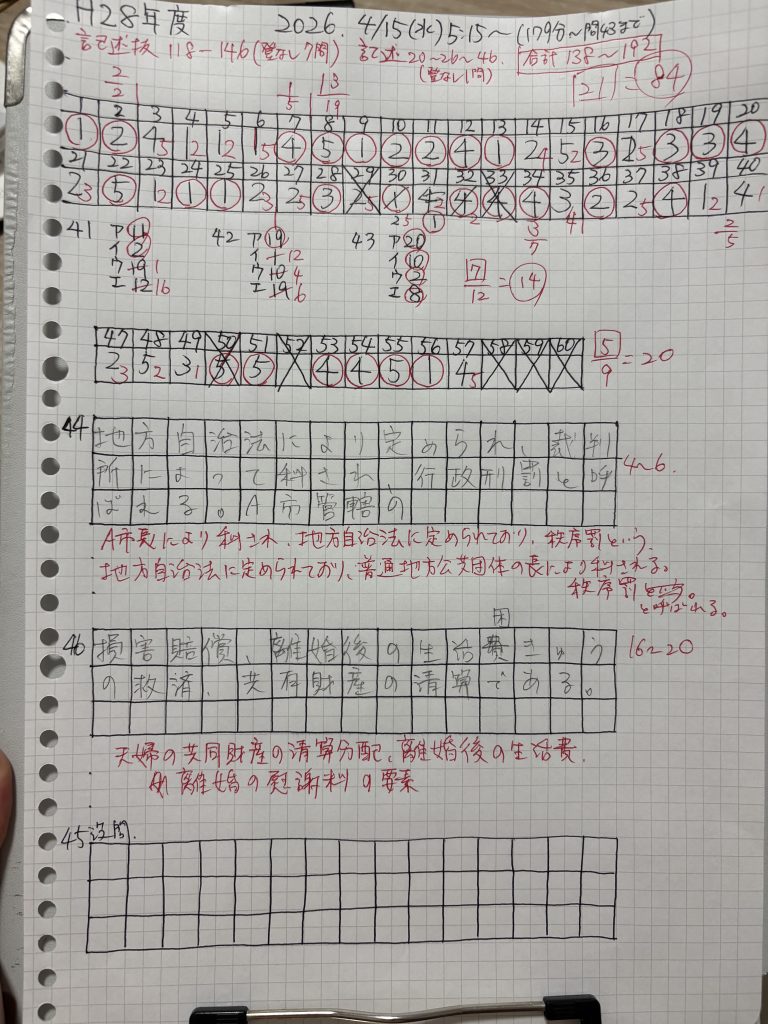 H28年度 2026. 4/15(水) 5:15〜(179分〜問43まで)
記述抜 118-146(登なし7問) 記述20〜26〜46. 合計138〜192
(登なし1問)
2/2 1/5 13/19 21 = 84
1 2 3 4 5 6 7 8 9 10 11 12 13 14 15 16 17 18 19 20
1 2 4 3 1 2 1 2 1 5 4 5 1 2 2 4 1 2 4 5 2 3 3 3 4
21 22 23 24 25 26 27 28 29 30 31 32 33 34 35 36 37 38 39 40
2 3 5 1 2 1 1 2 3 2 5 3 4 3 2 2 5 4 1 2 4
41 ア 11 42 ア 19 43 ア 20 3/7 2/5
イ 2 イ 12 イ 10
ウ 19 1 ウ 10 4 ウ 2 7/12 = 14
エ 12 16 エ 19 6 エ 8
47 48 49 50 51 52 53 54 55 56 57 58 59 60
2 3 5 2 3 1 3 5 4 4 5 1 4 5 5/9 = 20
44 地方自治法により定められ、裁判
所によって科され、行政刑罰と呼 4〜6.
ばれる。A市管轄の
A市長により科され、地方自治法に定められており、秩序罰という
地方自治法に定められており、普通地方公共団体の長により科される。
秩序罰という。
と呼ばれる。
困
46 損害賠償、離婚後の生活費きゅう 16〜20
の救済、共有財産の清算である。
夫婦の共同財産の清算分配、離婚後の生活費、
離婚の慰謝料の要素
45 没問.